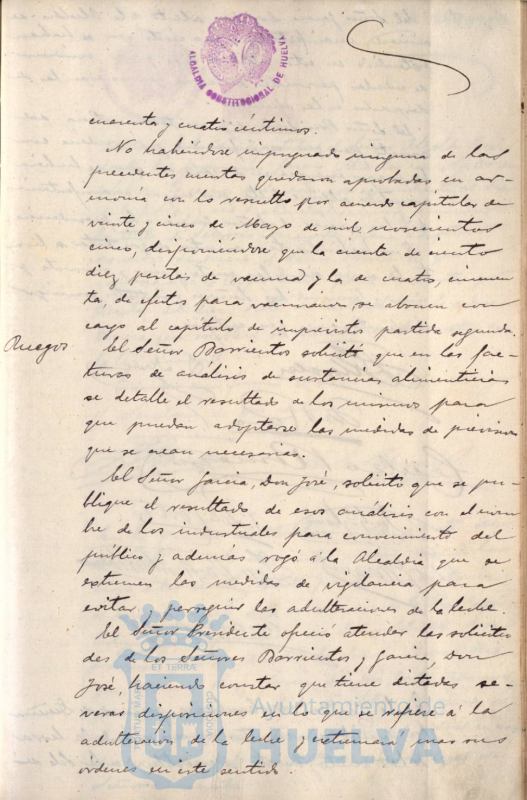 ALCALDIA CONSTITUCIONAL DE HUELVA
cuarenta y cuatro céntimos.
No habiéndose impugnado ninguna de las
precedentes cuentas quedaron aprobadas en ar-
monía con lo resuelto por acuerdo capitular de
veinte y cinco de Mayo de mil novecientos
cinco, disponiéndose que la cuenta de ciento
diez pesetas de vacuna y la de cuatro, cincuen-
ta, de efectos para vacunación, se abonen con
cargo al capítulo de imprevistos partida segunda.
Ruegos
El Señor Barrientos solicitó que en las fac-
turas de análisis de sustancias alimenticias
se detalle el resultado de los mismos para
que puedan adoptarse las medidas de previsión
que se crean necesarias.
El Señor Garcia, Don José, solicitó que se pu-
blique el resultado de esos análisis con el nom-
bre de los industriales para conocimiento del
público y además rogó á la Alcaldía que se
extremen las medidas de vigilancia para
evitar y perseguir las adulteraciones de la leche.
El Señor Presidente ofreció atender las solicitu-
des de los Señores Barrientos y Garcia, Don
José, haciendo constar que tiene dictadas se-
veras disposiciones en lo que se refiere á la
adulteracion de la leche y extremará mas sus
ordenes en este sentido.
ET TERRA
Ayuntamiento de
HUELVA